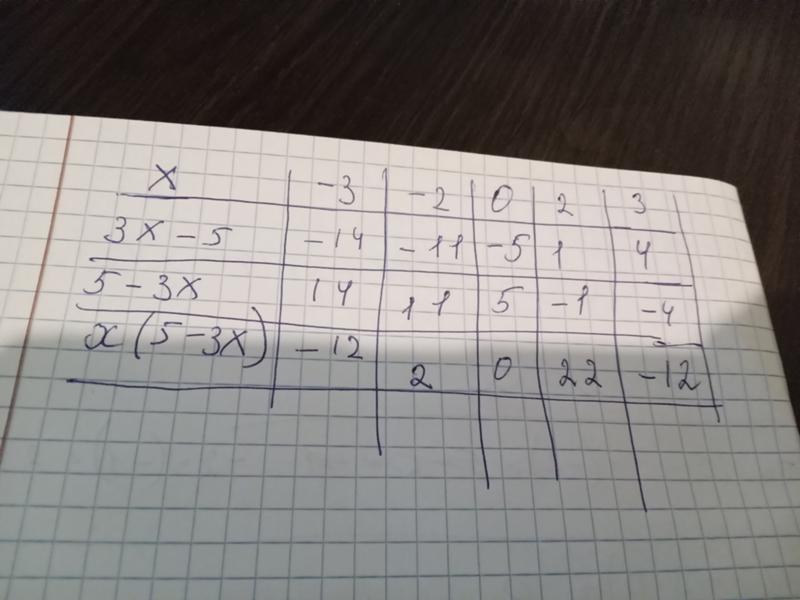 x -3 -2 0 2 3
3x-5 -14 -11 -5 1 4
5-3x 14 11 5 -1 -4
x(5-3x) -12 2 0 22 -12